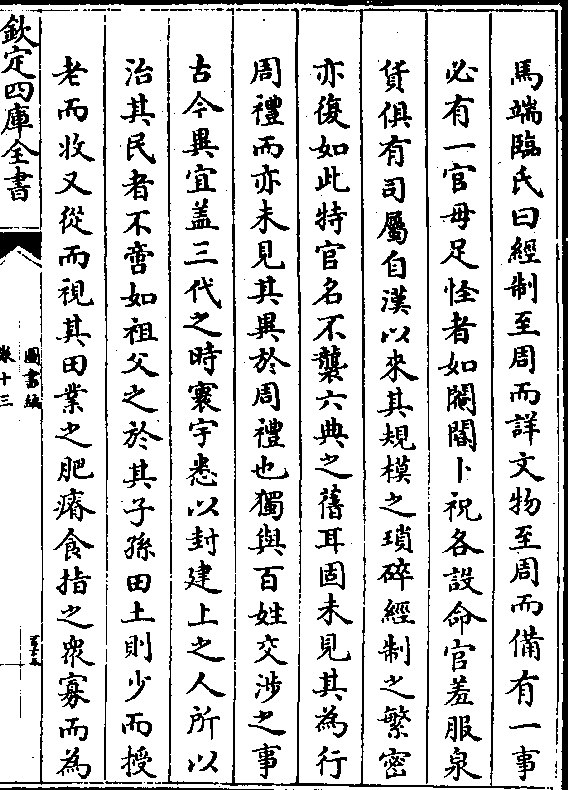 馬端臨氏曰經制至周而詳文物至周而備有一事
必有一官毋足怪者如閽閽卜祝各設命官羞服泉
貨俱有司屬自漢以來其規模之瑣碎經制之繁密
亦復如此特官名不襲六典之舊耳固未見其為行
周禮而亦未見其異於周禮也獨與百姓交涉之事
古今異宜盖三代之時寰宇悉以封建上之人所以
治其民者不啻如祖父之於其子孫田土則少而授
老而收又從而視其田業之肥瘠食指之衆寡而為
欽定四庫全書
圖書編
卷十三